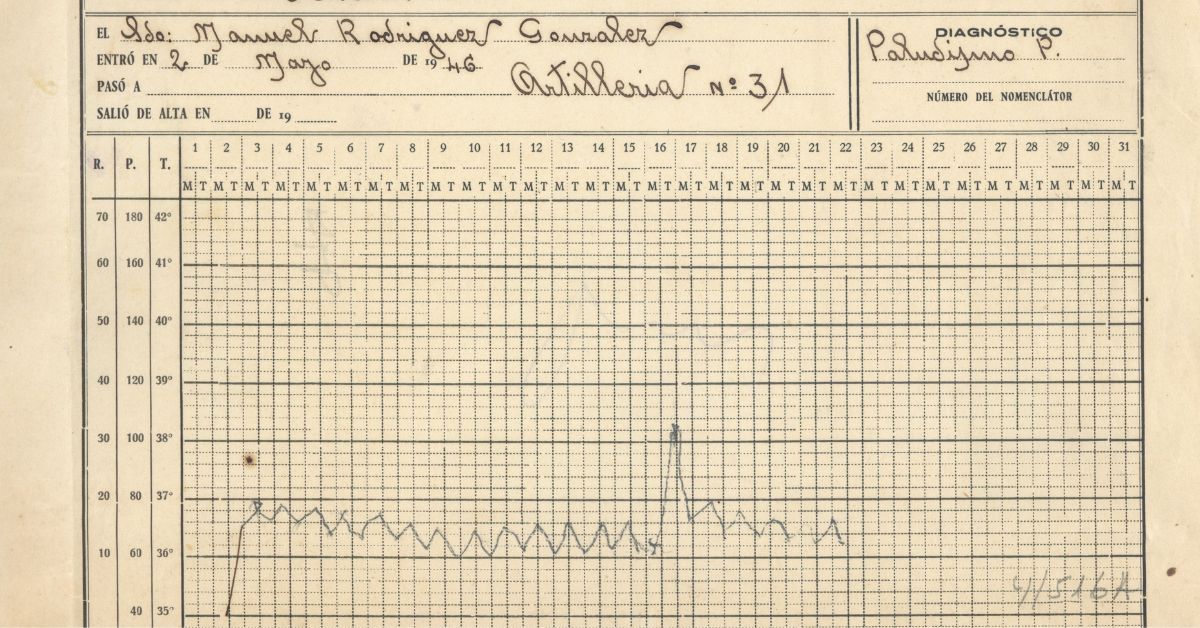 EL Sdo: Manuel Rodriguez Gonzalez
ENTRÓ EN 2 DE Mayo DE 1946
PASÓ A Artilleria nº 31
SALIÓ DE ALTA EN DE 19
DIAGNÓSTICO
Paludismo P.
NÚMERO DEL NOMENCLÁTOR
R. P. T. 1 2 3 4 5 6 7 8 9 10 11 12 13 14 15 16 17 18 19 20 21 22 23 24 25 26 27 28 29 30 31
M T M T M T M T M T M T M T M T M T M T M T M T M T M T M T M T M T M T M T M T M T M T M T M T M T M T M T M T M T M T M T
70 180 42°
60 160 41°
50 140 40°
40 120 39°
30 100 38°
20 80 37°
10 60 36°
40 35°
4/516A